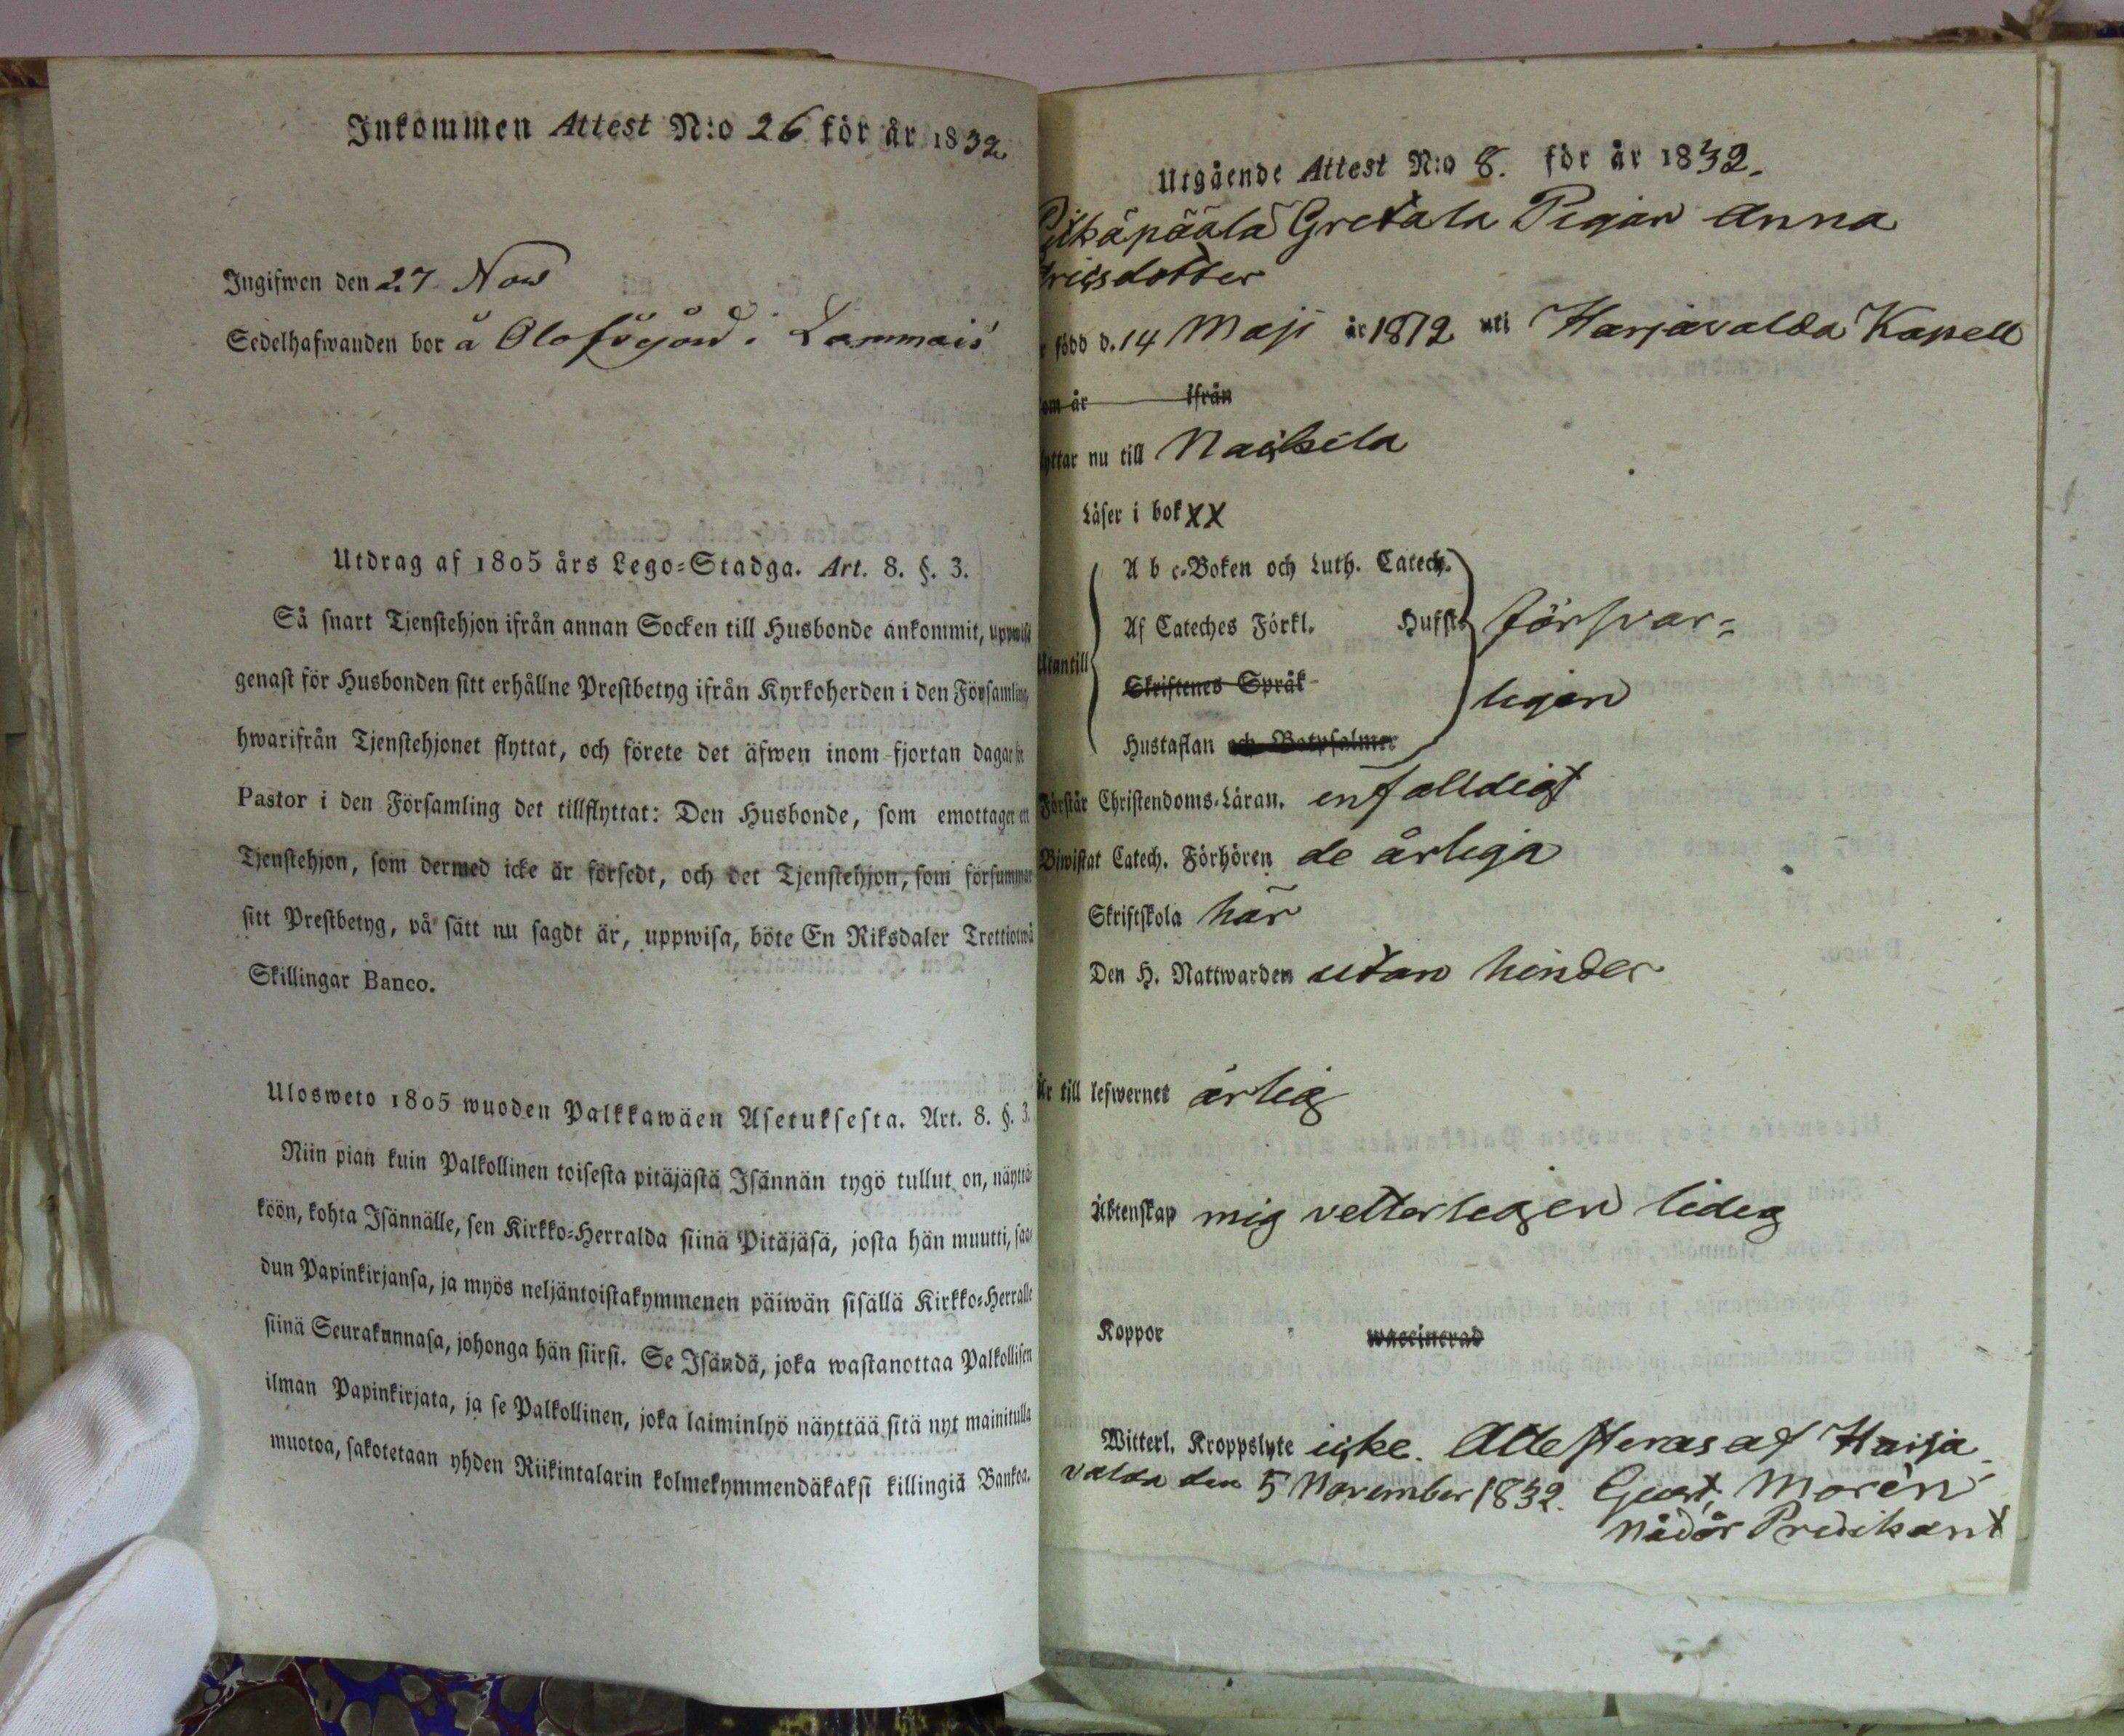 Inkommen Attest N:o 26 för år 1832
Ingifwen den 27 Nov
Sedelhafwanden bor å Olofsgård i Lammais
Utdrag af 1805 års Lego-Stadga. Art. 8. §. 3.
Så snart Tjenstehjon ifrån annan Socken till Husbonde ankommit, uppwise
genast för Husbonden sitt erhållne Prestbetyg ifrån Kyrkoherden i den Församling,
hwarifrån Tjenstehjonet flyttat, och förete det äfwen inom fjortan dagar för
Pastor i den Församling det tillflyttat: Den Husbonde, som emottager en
Tjenstehjon, som dermed icke är försedt, och det Tjenstehjon, som försummar
sitt Prestbetyg, på sätt nu sagdt är, uppwisa, böte En Riksdaler Trettiotwå
Skillingar Banco.
Ulosweto 1805 wuoden Palkkawäen Asetuksesta. Art. 8. §. 3.
Niin pian kuin Palkollinen toisesta pitäjästä Isännän tygö tullut on, näyttä-
köön, kohta Isännälle, sen Kirkko-Herralda siinä Pitäjäsä, josta hän muutti, saa-
dun Papinkirjansa, ja myös neljäntoistakymmenen päiwän sisällä Kirkko-Herralle
siinä Seurakunnasa, johonga hän siirsi. Se Isändä, joka wastanottaa Palkollisen
ilman Papinkirjata, ja se Palkollinen, joka laiminlyö näyttää sitä nyt mainitulla
muotoa, sakotetaan yhden Riikintalarin kolmekymmendäkaksi killingiä Bankoa.
Utgående Attest N:o 8. för år 1832.
Gretala Pigan Anna
född d. 14 Maji år 1812 uti Harjavalda Kapell
om år ifrån
yttar nu till Nackila
Läser i bok XX
A b c-Boken och Luth. Catech.
Af Cateches Förkl. Hufst. försvar-
Utantill
Skriftenes Språk
ligen
Hustaflan och Botpsalmer
Förstår Christendoms-Läran. enfalldigt
Biwistat Catech. Förhören de årliga
Skriftskola här
Den H. Nattwarden utan hinder
Är till lefwernet ärlig
Äktenskap mig vetterligen ledig
Koppor vaccinerad
Witterl. Kroppslyte icke. Attesteras af Harja
valda den 5 November 1832. Gust. Morén
Nådår Predikant